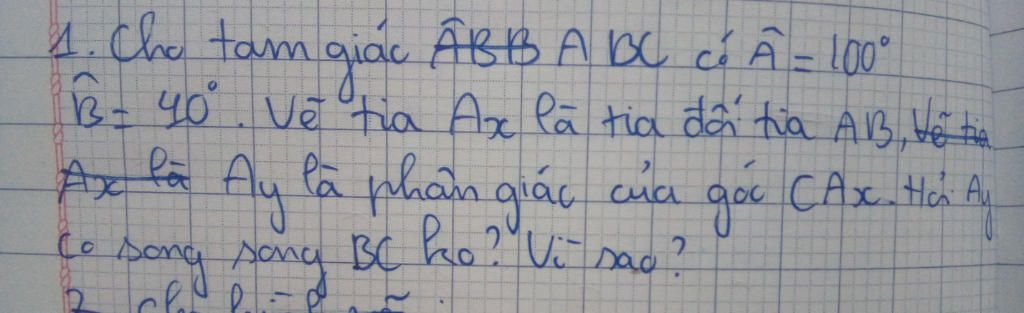 1. Cho tam giác ABB ABC có Â = 100°
B̂ = 40°. Vẽ tia Ax là tia đối tia AB, Vẽ tia
Ax là Ay là phân giác của góc CAx. Hỏi Ay
có song song BC ko? Vì sao?
2